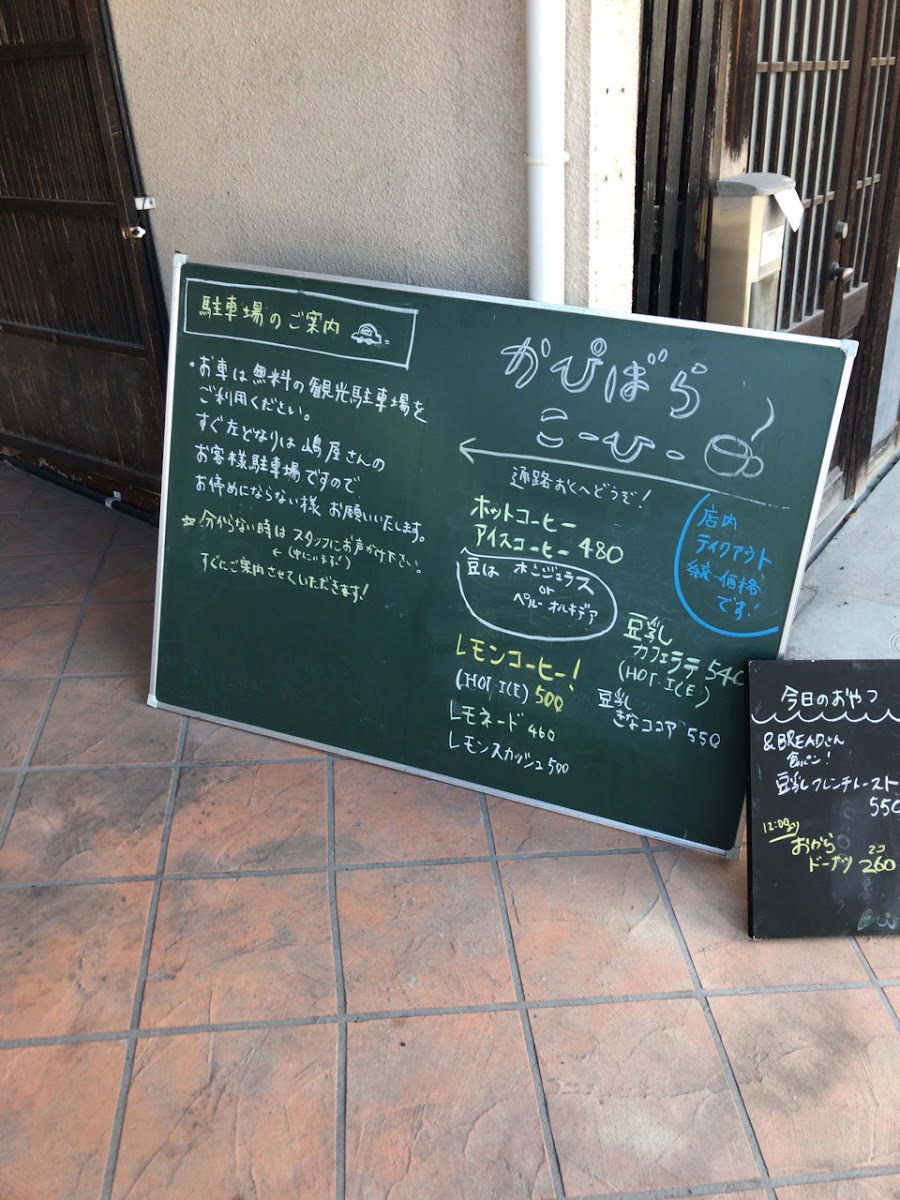 駐車場のご案内
・お車は無料の観光駐車場を
ご利用ください。
すぐ左どなりは嶋屋さんの
お客様駐車場ですので
お停めにならない様 お願いいたします。
☆分からない時はスタッフにお声がけ下さい。
←(中にいます!)
すぐにご案内させていただきます!
かぴばら
こーひー
通路おくへどうぞ!
ホットコーヒー
アイスコーヒー 480
豆は ホンジュラス
or
ペルー オルキデア
店内
テイクアウト
統一価格
です!
レモンコーヒー!
(HOT.ICE) 500
レモネード 460
レモンスカッシュ 500
豆乳
カフェラテ 540
(HOT.ICE)
豆乳
きなココア 550
今日のおやつ
&BREADさん
食パン!
豆乳フレンチトースト
550
12:00より
おから
ドーナツ 2コ 260